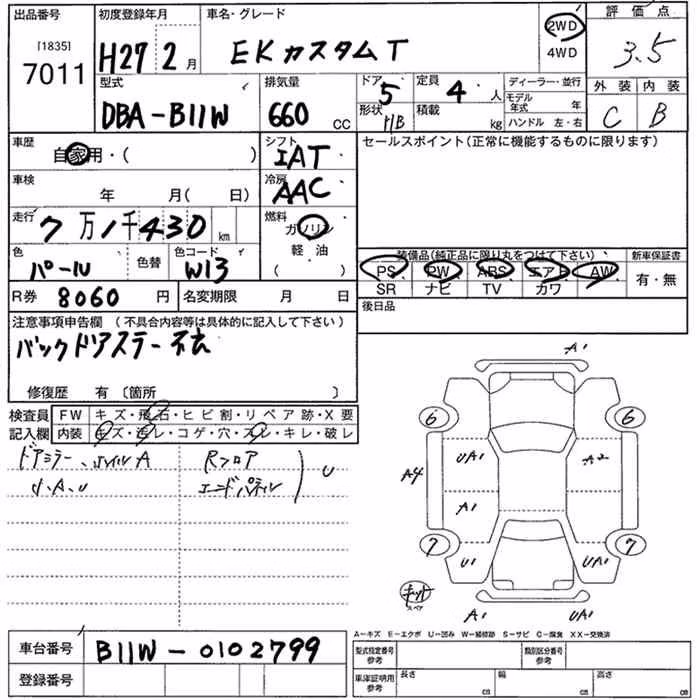 出品番号 初度登録年月 車名・グレード 評価点
[1835] 7011 H27 2月 EKカスタムT 2WD 4WD 3.5
外装 内装
C B
型式 排気量 ドア 定員 ディーラー・並行
DBA-B11W 660 CC 5 4人 モデル年式 年
形状 HB 積載 kg ハンドル 左・右
車歴 シフト セールスポイント(正常に機能するものに限ります)
自家用・( ) IAT
車検 冷房
年 月( 日) AAC
走行 燃料
7万1千430km ガソリン
色 色替 色コード 軽・油
パール W13 ( )
装備品(純正品に限り丸をつけて下さい) 新車保証書
PS PW ABS エアB AW 有・無
SR ナビ TV カワ
R券 8060円 名変期限 月 日
後日品
注意事項申告欄 (不具合内容等は具体的に記入して下さい)
バックドアステー不良
修復歴 有〔箇所 〕
検査員 FW キズ・飛石・ヒビ割・リペア跡・X要
記入欄 内装 キズ・汚レ・コゲ・穴・スレ・キレ・破レ
ドアミラー、ホイルA Rフロア U
小A、U エンドパネル
A1
6 6
UA1 A2
A4
A1
7 7
U1 UA1
キット
スペア
A1 UA1
A−キズ E−エクボ U−凹み W−補修跡 S−サビ C−腐食 XX−交換済
車台番号 B11W-0102799
登録番号
型式指定番号 参考 類別区分番号 参考
車庫証明用 参考 長さ cm 幅 cm 高さ cm